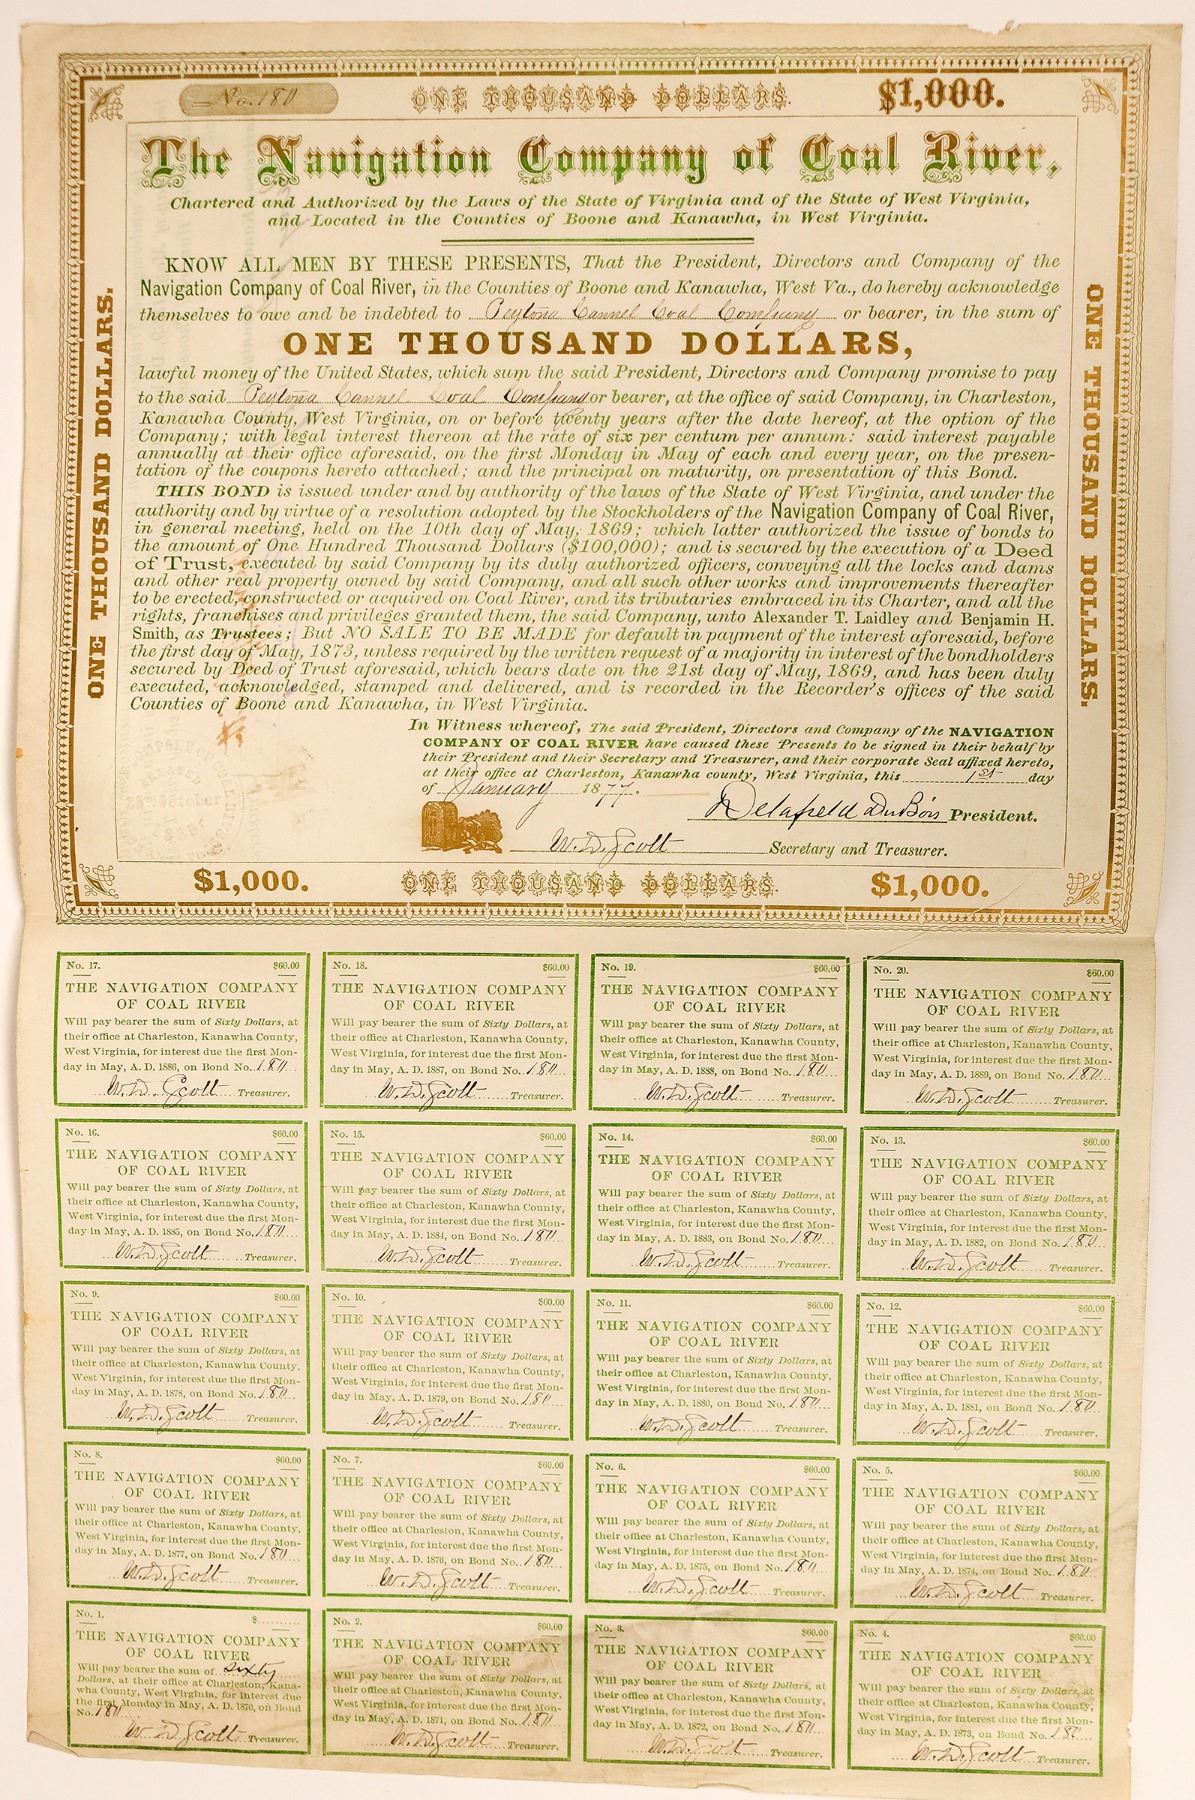 No. 180
ONE THOUSAND DOLLARS.
$1,000.
The Navigation Company of Coal River,
Chartered and Authorized by the Laws of the State of Virginia and of the State of West Virginia,
and Located in the Counties of Boone and Kanawha, in West Virginia.
KNOW ALL MEN BY THESE PRESENTS, That the President, Directors and Company of the
Navigation Company of Coal River, in the Counties of Boone and Kanawha, West Va., do hereby acknowledge
themselves to owe and be indebted to Peytona Cannel Coal Company or bearer, in the sum of
ONE THOUSAND DOLLARS,
lawful money of the United States, which sum the said President, Directors and Company promise to pay
to the said Peytona Cannel Coal Company or bearer, at the office of said Company, in Charleston,
Kanawha County, West Virginia, on or before twenty years after the date hereof, at the option of the
Company; with legal interest thereon at the rate of six per centum per annum: said interest payable
annually at their office aforesaid, on the first Monday in May of each and every year, on the presen-
tation of the coupons hereto attached; and the principal on maturity, on presentation of this Bond.
THIS BOND is issued under and by authority of the laws of the State of West Virginia, and under the
authority and by virtue of a resolution adopted by the Stockholders of the Navigation Company of Coal River,
in general meeting, held on the 10th day of May, 1869; which latter authorized the issue of bonds to
the amount of One Hundred Thousand Dollars ($100,000); and is secured by the execution of a Deed
of Trust, executed by said Company by its duly authorized officers, conveying all the locks and dams
and other real property owned by said Company, and all such other works and improvements thereafter
to be erected, constructed or acquired on Coal River, and its tributaries embraced in its Charter, and all the
rights, franchises and privileges granted them, the said Company, unto Alexander T. Laidley and Benjamin H.
Smith, as Trustees; But NO SALE TO BE MADE for default in payment of the interest aforesaid, before
the first day of May, 1873, unless required by the written request of a majority in interest of the bondholders
secured by Deed of Trust aforesaid, which bears date on the 21st day of May, 1869, and has been duly
executed, acknowledged, stamped and delivered, and is recorded in the Recorder's offices of the said
Counties of Boone and Kanawha, in West Virginia.
In Witness whereof, The said President, Directors and Company of the NAVIGATION
COMPANY OF COAL RIVER have caused these Presents to be signed in their behalf by
their President and their Secretary and Treasurer, and their corporate Seal affixed hereto,
at their office at Charleston, Kanawha county, West Virginia, this 1st day
of January 1877.
Delafield DuBois President.
W. D. Scott Secretary and Treasurer.
ONE THOUSAND DOLLARS.
ONE THOUSAND DOLLARS.
$1,000.
ONE THOUSAND DOLLARS.
$1,000.
No. 17. $60.00
THE NAVIGATION COMPANY
OF COAL RIVER
Will pay bearer the sum of Sixty Dollars, at
their office at Charleston, Kanawha County,
West Virginia, for interest due the first Mon-
day in May, A. D. 1886, on Bond No. 180
W. D. Scott Treasurer.
No. 18. $60.00
THE NAVIGATION COMPANY
OF COAL RIVER
Will pay bearer the sum of Sixty Dollars, at
their office at Charleston, Kanawha County,
West Virginia, for interest due the first Mon-
day in May, A. D. 1887, on Bond No. 180
W. D. Scott Treasurer.
No. 19. $60.00
THE NAVIGATION COMPANY
OF COAL RIVER
Will pay bearer the sum of Sixty Dollars, at
their office at Charleston, Kanawha County,
West Virginia, for interest due the first Mon-
day in May, A. D. 1888, on Bond No. 180
W. D. Scott Treasurer.
No. 20. $60.00
THE NAVIGATION COMPANY
OF COAL RIVER
Will pay bearer the sum of Sixty Dollars, at
their office at Charleston, Kanawha County,
West Virginia, for interest due the first Mon-
day in May, A. D. 1889, on Bond No. 180
W. D. Scott Treasurer.
No. 16. $60.00
THE NAVIGATION COMPANY
OF COAL RIVER
Will pay bearer the sum of Sixty Dollars, at
their office at Charleston, Kanawha County,
West Virginia, for interest due the first Mon-
day in May, A. D. 1885, on Bond No. 180
W. D. Scott Treasurer.
No. 15. $60.00
THE NAVIGATION COMPANY
OF COAL RIVER
Will pay bearer the sum of Sixty Dollars, at
their office at Charleston, Kanawha County,
West Virginia, for interest due the first Mon-
day in May, A. D. 1884, on Bond No. 180
W. D. Scott Treasurer.
No. 14. $60.00
THE NAVIGATION COMPANY
OF COAL RIVER
Will pay bearer the sum of Sixty Dollars, at
their office at Charleston, Kanawha County,
West Virginia, for interest due the first Mon-
day in May, A. D. 1883, on Bond No. 180
W. D. Scott Treasurer.
No. 13. $60.00
THE NAVIGATION COMPANY
OF COAL RIVER
Will pay bearer the sum of Sixty Dollars, at
their office at Charleston, Kanawha County,
West Virginia, for interest due the first Mon-
day in May, A. D. 1882, on Bond No. 180
W. D. Scott Treasurer.
No. 9. $60.00
THE NAVIGATION COMPANY
OF COAL RIVER
Will pay bearer the sum of Sixty Dollars, at
their office at Charleston, Kanawha County,
West Virginia, for interest due the first Mon-
day in May, A. D. 1878, on Bond No. 180
W. D. Scott Treasurer.
No. 10. $60.00
THE NAVIGATION COMPANY
OF COAL RIVER
Will pay bearer the sum of Sixty Dollars, at
their office at Charleston, Kanawha County,
West Virginia, for interest due the first Mon-
day in May, A. D. 1879, on Bond No. 180
W. D. Scott Treasurer.
No. 11. $60.00
THE NAVIGATION COMPANY
OF COAL RIVER
Will pay bearer the sum of Sixty Dollars, at
their office at Charleston, Kanawha County,
West Virginia, for interest due the first Mon-
day in May, A. D. 1880, on Bond No. 180
W. D. Scott Treasurer.
No. 12. $60.00
THE NAVIGATION COMPANY
OF COAL RIVER
Will pay bearer the sum of Sixty Dollars, at
their office at Charleston, Kanawha County,
West Virginia, for interest due the first Mon-
day in May, A. D. 1881, on Bond No. 180
W. D. Scott Treasurer.
No. 8. $60.00
THE NAVIGATION COMPANY
OF COAL RIVER
Will pay bearer the sum of Sixty Dollars, at
their office at Charleston, Kanawha County,
West Virginia, for interest due the first Mon-
day in May, A. D. 1877, on Bond No. 180
W. D. Scott Treasurer.
No. 7. $60.00
THE NAVIGATION COMPANY
OF COAL RIVER
Will pay bearer the sum of Sixty Dollars, at
their office at Charleston, Kanawha County,
West Virginia, for interest due the first Mon-
day in May, A. D. 1876, on Bond No. 180
W. D. Scott Treasurer.
No. 6. $60.00
THE NAVIGATION COMPANY
OF COAL RIVER
Will pay bearer the sum of Sixty Dollars, at
their office at Charleston, Kanawha County,
West Virginia, for interest due the first Mon-
day in May, A. D. 1875, on Bond No. 180
W. D. Scott Treasurer.
No. 5. $60.00
THE NAVIGATION COMPANY
OF COAL RIVER
Will pay bearer the sum of Sixty Dollars, at
their office at Charleston, Kanawha County,
West Virginia, for interest due the first Mon-
day in May, A. D. 1874, on Bond No. 180
W. D. Scott Treasurer.
No. 1. $
THE NAVIGATION COMPANY
OF COAL RIVER
Will pay bearer the sum of Sixty
Dollars, at their office at Charleston, Kana-
wha County, West Virginia, for interest due
the first Monday in May, A. D. 1870, on Bond
No. 180
W. D. Scott Treasurer.
No. 2. $60.00
THE NAVIGATION COMPANY
OF COAL RIVER
Will pay bearer the sum of Sixty Dollars, at
their office at Charleston, Kanawha County,
West Virginia, for interest due the first Mon-
day in May, A. D. 1871, on Bond No. 180
W. D. Scott Treasurer.
No. 3. $60.00
THE NAVIGATION COMPANY
OF COAL RIVER
Will pay bearer the sum of Sixty Dollars, at
their office at Charleston, Kanawha County,
West Virginia, for interest due the first Mon-
day in May, A. D. 1872, on Bond No. 180
W. D. Scott Treasurer.
No. 4. $60.00
THE NAVIGATION COMPANY
OF COAL RIVER
Will pay bearer the sum of Sixty Dollars, at
their office at Charleston, Kanawha County,
West Virginia, for interest due the first Mon-
day in May, A. D. 1873, on Bond No. 180
W. D. Scott Treasurer.